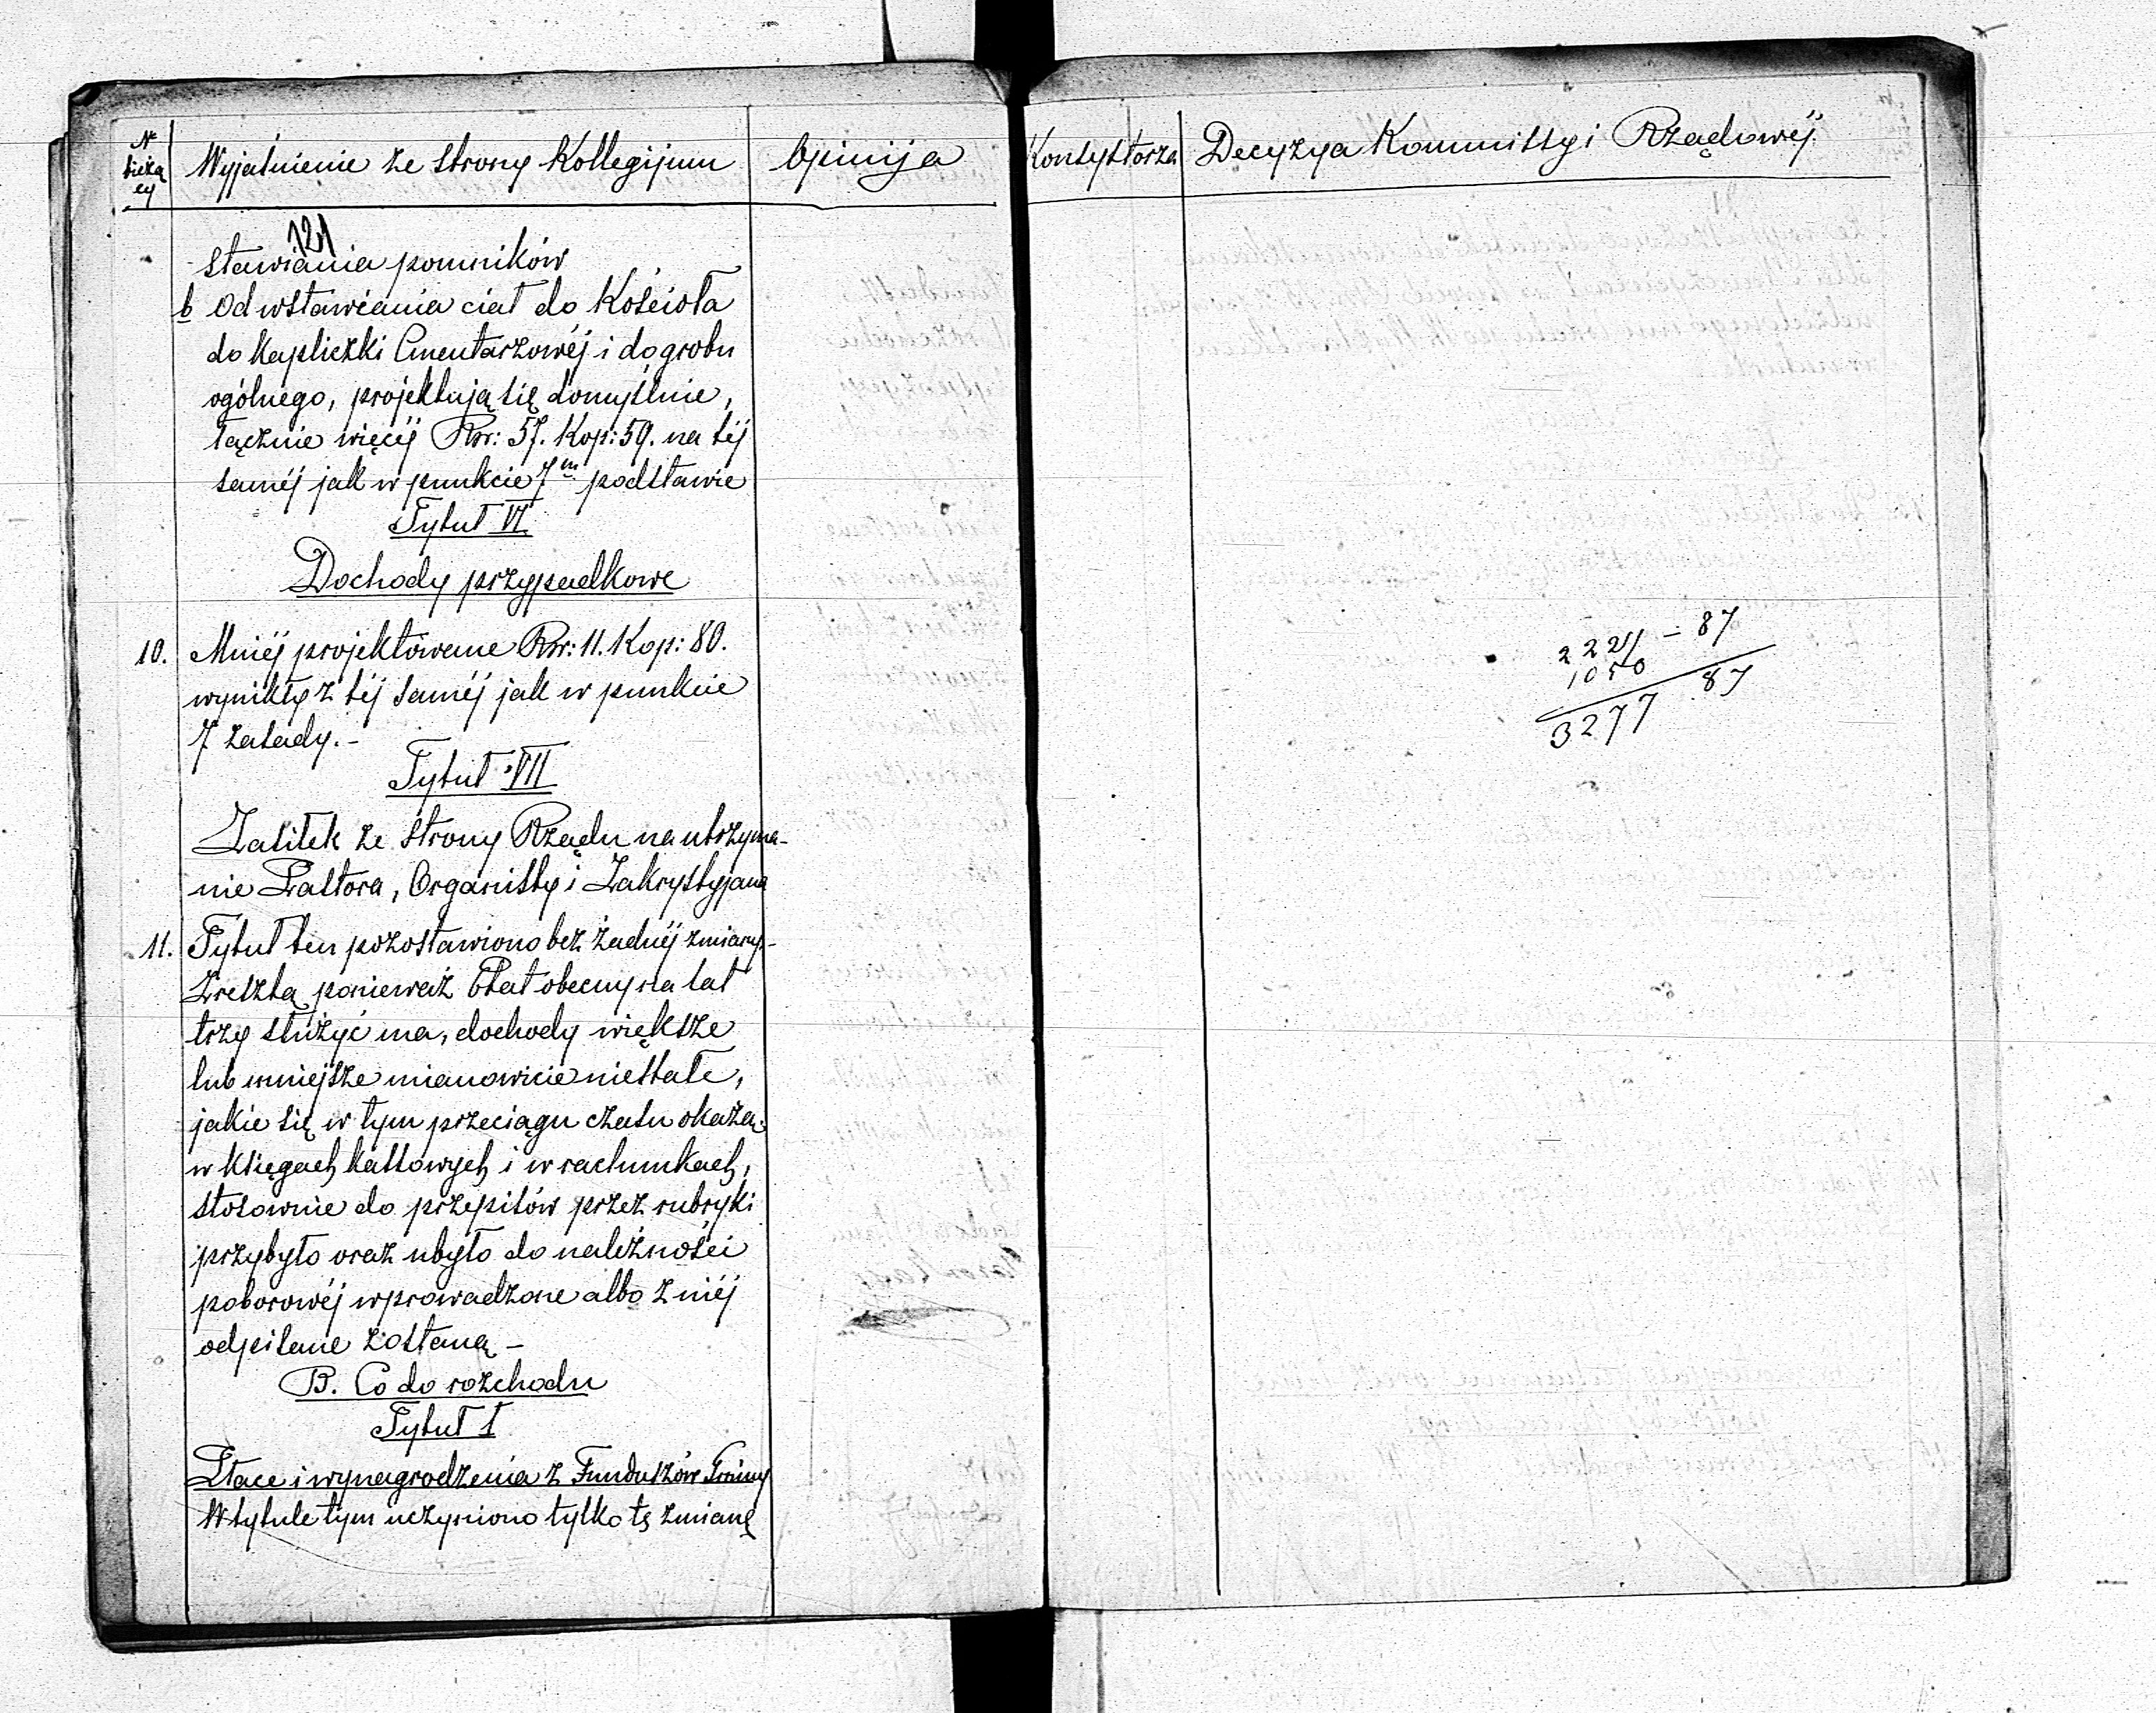 N bieżą cy
Wyjaśnienie ze strony Kollegijum
Opinija Konsystorza
Decyzya Kommissyi Rządowéj
121
stawiania pomników
b Od wstawiania ciał do Kościoła
do kapliczki Cmentarzowéj i do grobu
ogólnego, projektują się domyślnie,
łącznie więcéj Rsr: 57. Kop: 59. na téj
saméj jak w punkcie 7m podstawie
Tytuł VI
Dochody przypadkowe
10. Mniéj projektowane Rsr: 11. Kop: 80.
wynikły z téj saméj jak w punkcie
7 zasady. –
Tytuł VII
Zasiłek ze strony Rządu na utrzyma-
nie Pastora, Organisty i Zakrystyjana
11. Tytuł ten pozostawiono bez żadnéj zmiany. –
Zresztą ponieważ Etat obecny na lat
trzy służyć ma, dochody większe
lub mniejsze mianowicie niestałe,
jakie się w tym przeciągu czasu okażą
w księgach kassowych i w rachunkach,
stosownie do przepisów przez rubryki
przybyło oraz ubyło do należności
poborowéj wprowadzone albo z niéj
odpisane zostaną –
B. Co do rozchodu
Tytuł I
Płace i wynagrodzenia z Funduszów Gminy
W tytule tym uczyniono tylko tę zmianę
2227 – 87
1050
3277 87